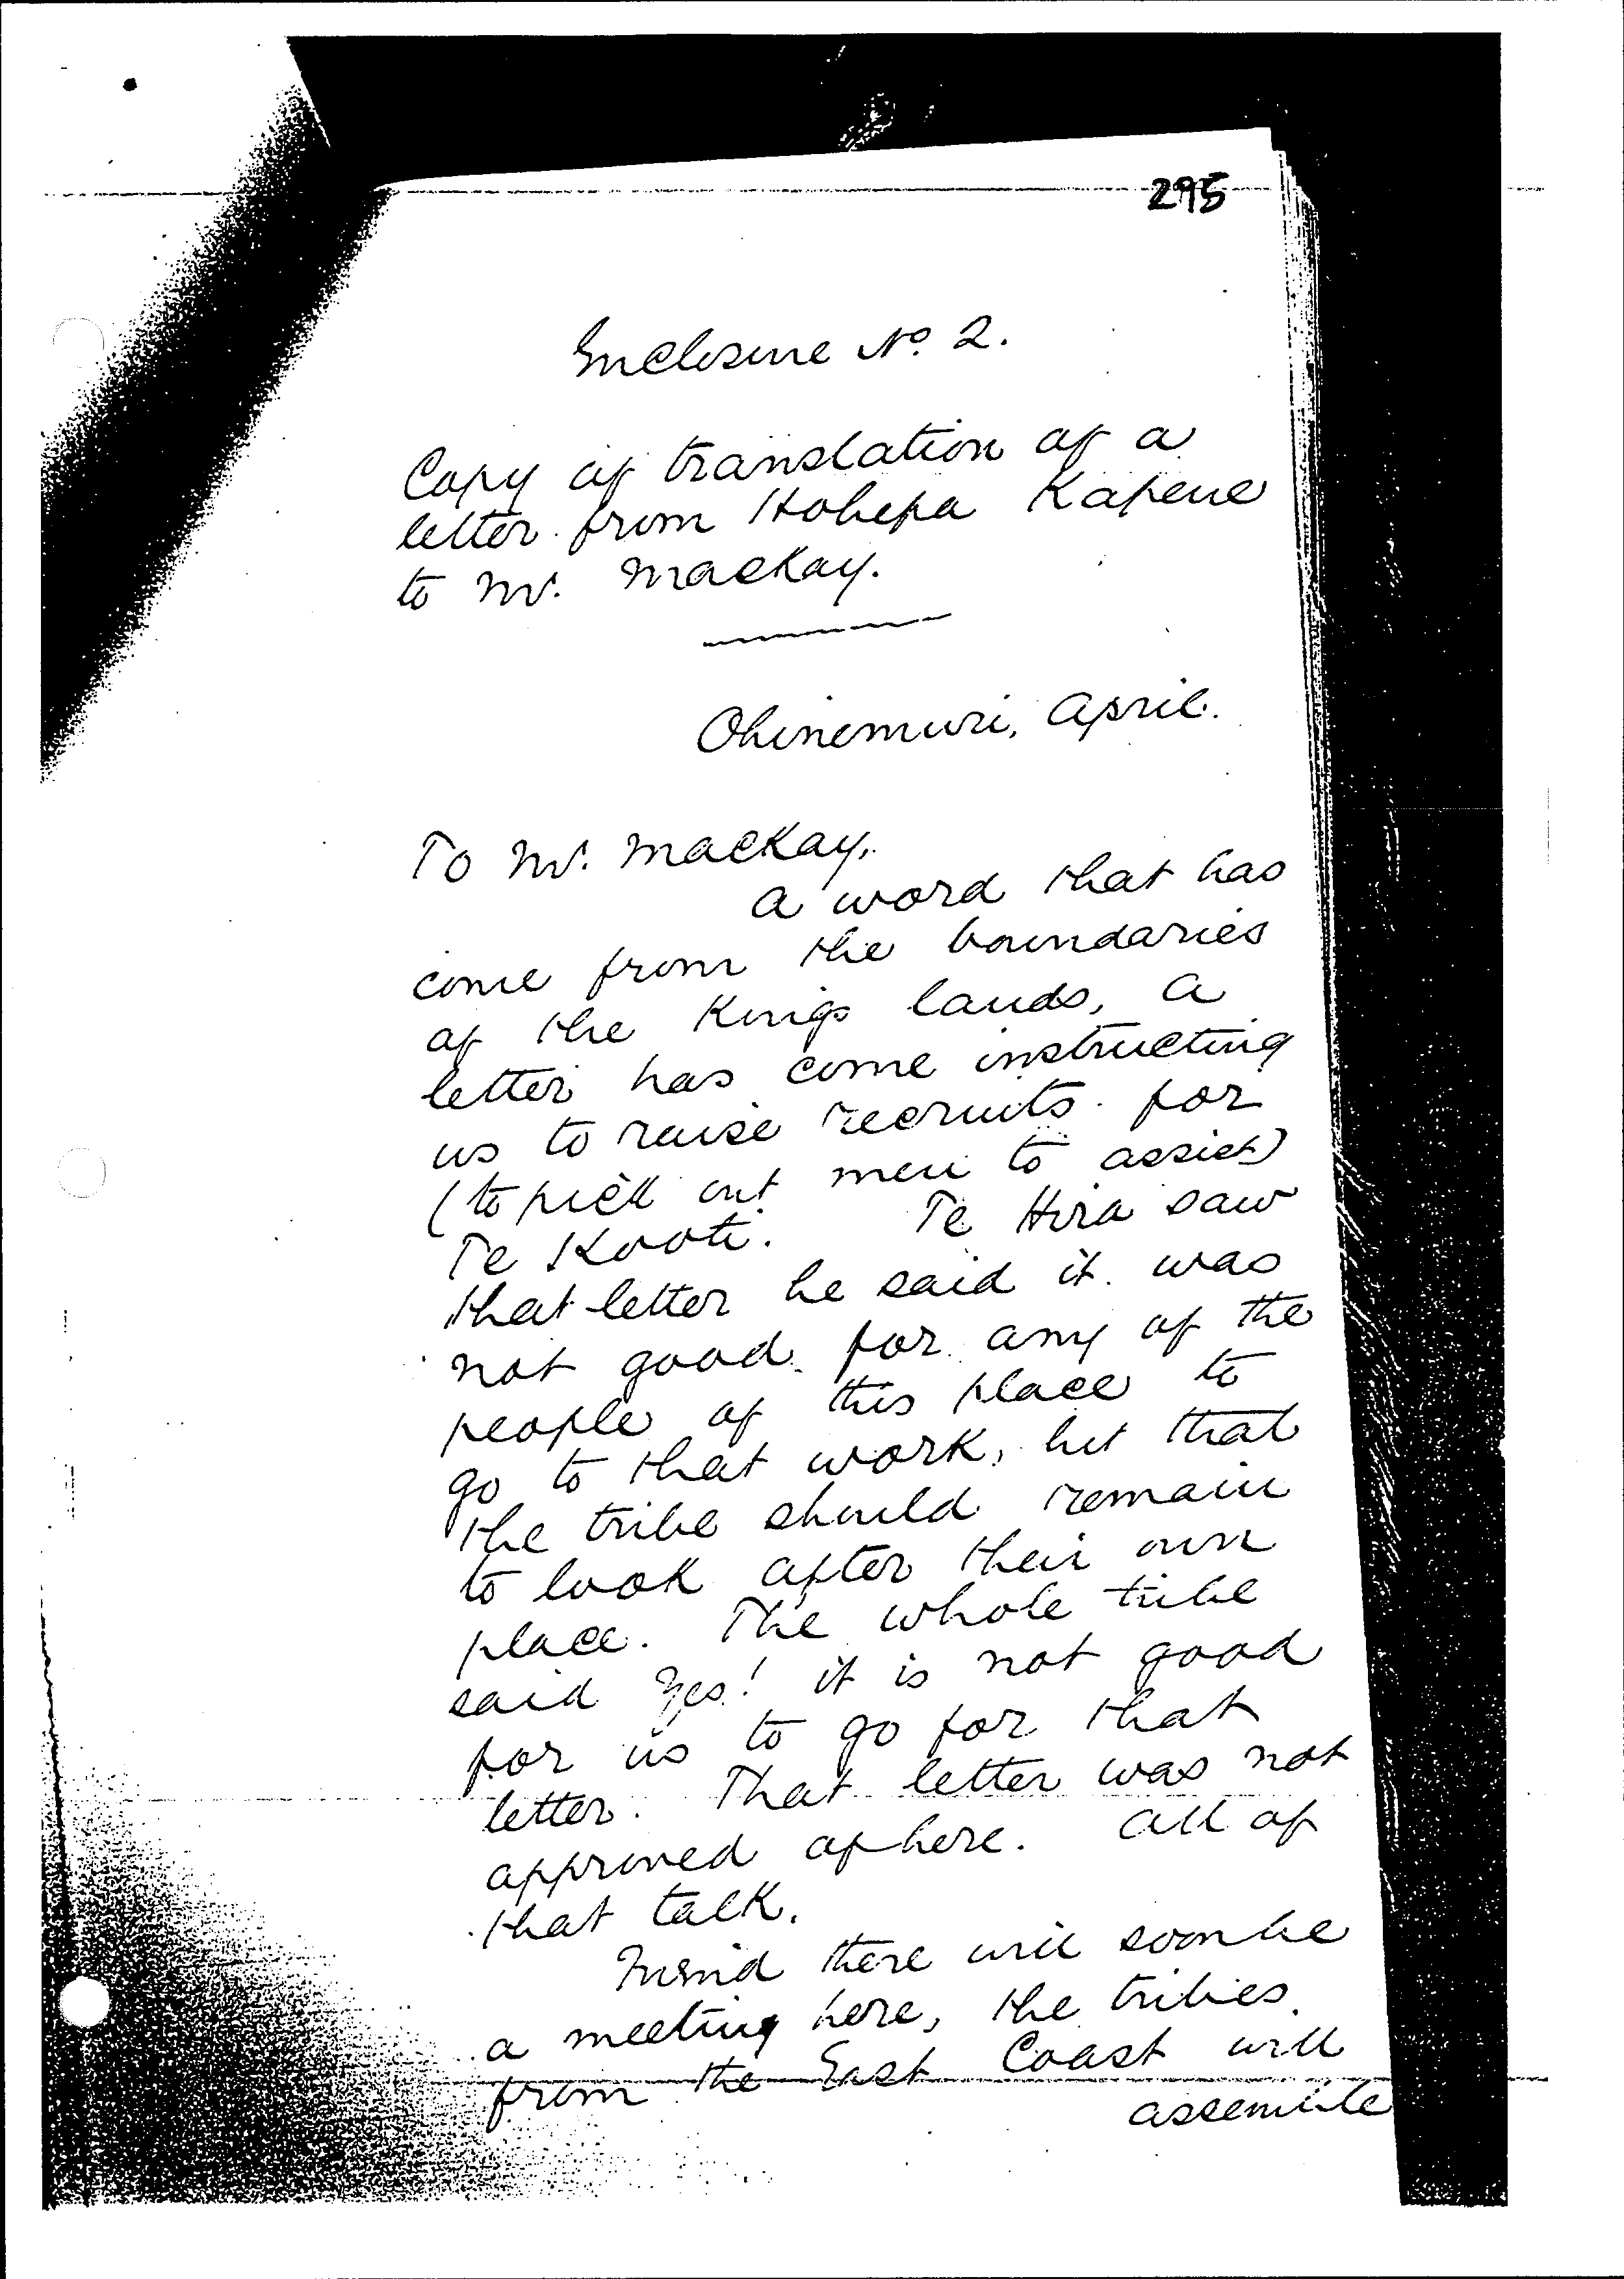 295
Enclosure No. 2.
Copy of translation of a
letter from Hohepa Kapene
to Mr. Mackay.
Ohinemuri, April.
To Mr. Mackay,
A word that has
come from the boundaries
of the Kings lands, a
letter has come instructing
us to raise recruits for
(to pick out men to assist)
Te Kooti. Te Hira saw
that letter he said it was
not good for any of the
people of this place to
go to that work, but that
the tribe should remain
to look after their own
place. The whole tribe
said Yes! it is not good
for us to go for that
letter. That letter was not
approved of here. All of
that talk.
Friend there will soon be
a meeting here, the tribes
from the East Coast will
assemble